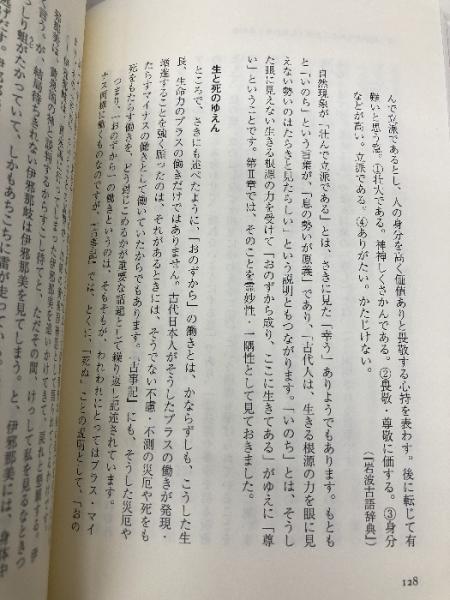 んで立派であるとし、人の身分を高く価値ありと畏敬する心持を表わす。後に転じて有
難いと思う意。①壮大である。神神しくさかんである。②畏敬・尊敬に価する。③身分
などが高い。立派である。④ありがたい。かたじけない。
（『岩波古語辞典』）
自然現象が「壮んで立派である」とは、さきに見た「幸う」ありようでもあります。もとも
と「いのち」という言葉が、「息の勢いが原義」であり、「古代人は、生きる根源の力を眼に見
えない勢いのはたらきと見たらしい」という説明ともつながります。「いのち」とは、そうし
た眼に見えない生きる根源の力を受けて「おのずから成り、ここに生きてある」がゆえに「尊
い」ということです。第Ⅱ章では、そのことを霊妙性・一隅性として見ておきました。
生と死のゆえん
ところで、さきにも述べたように、「おのずから」の働きとは、かならずしも、こうした生
長、生命力のプラスの働きだけではありません。古代日本人がそうしたプラスの働きが発現・
漸進することを強く願ったのは、それがあるときには、そうでない不慮・不測の災厄や死をも
たらすマイナスの働きとして働いていたからでもあります。『古事記』にも、そうした災厄や
死をもたらす働きを、どう封じこめるかが重要な話題として繰り返し記述されています。
つまり、「おのずから」の働きというのは、そもそもが、われわれにとってはプラス・マイ
ナス両様に働くものなのですが、『古事記』では、とくに、「死ぬ」ことの説明として、「おの
しまった伊邪那美を追いかけてき
黄泉国の神と談判するからすこし待てと、ただその間、けっして私を見るなときつ
く言う。が、結局待ちきれない伊邪那岐は伊邪那美を見てしまう。と、伊邪那美には、身体中
っしり蛆がたかっていて、しかもあちこちに雷が走ってい
128